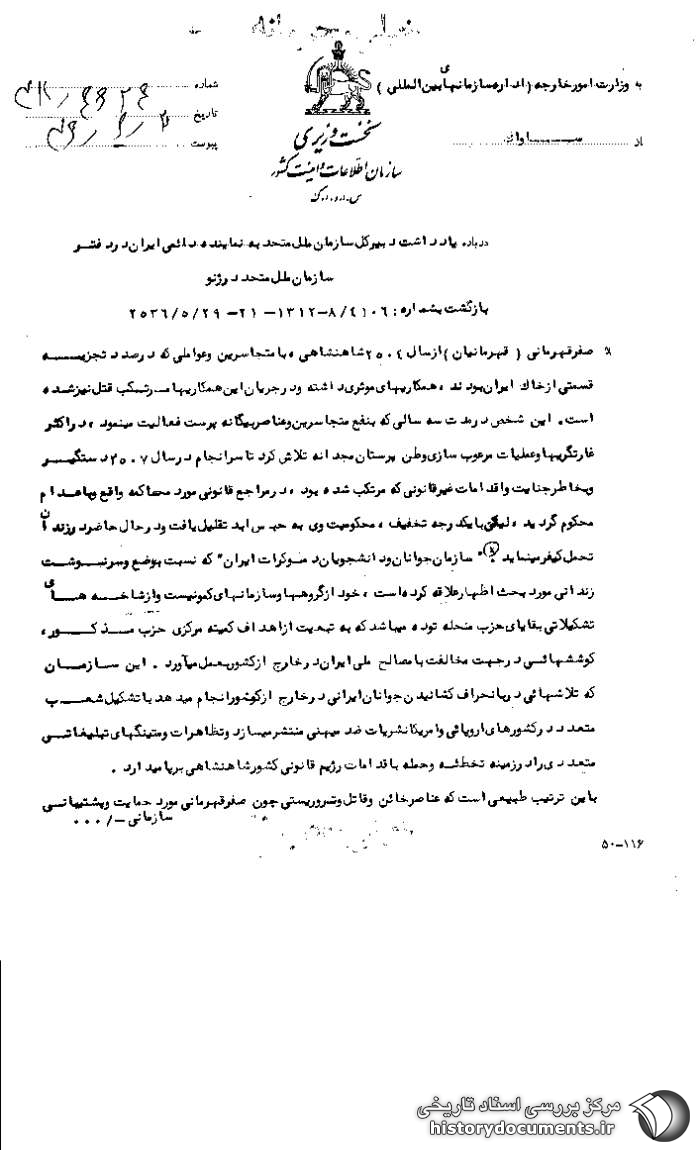 خیلی محرمانه
به وزارت امور خارجه (اداره سازمانهای بین المللی)
شماره
تاریخ
پیوست
از ساواک
نخست وزیری
سازمان اطلاعات و امنیت کشور
س.ا.و.ا.ک
درباره یادداشت دبیرکل سازمان ملل متحد به نماینده دائمی ایران در دفتر
سازمان ملل متحد در ژنو
بازگشت بشماره: ۲۵۳۶/۵/۲۹ -۲۱ -۱۳۱۲-۸/۴۱۰۶
صفرقهرمانی (قهرمانیان) از سال ۲۵۰۴ شاهنشاهی، با متجاسرین و عواملی که درصدد تجزیه
قسمتی از خاک ایران بودند، همکاریهای موثری داشته و در جریان این همکاریها مرتکب قتل نیز شده
است. این شخص در مدت سه سالی که بنفع متجاسرین و عناصر بیگانه پرست فعالیت مینمود، در اکثر
غارتگریها و عملیات مرعوب سازی وطن پرستان مجدانه تلاش کرد تا سرانجام در سال ۲۵۰۷ دستگیر
و بخاطر جنایت و اقدامات غیرقانونی که مرتکب شده بود، در مراجع قانونی مورد محاکمه واقع و باعدام
محکوم گردید، لیکن با یکدرجه تخفیف، محکومیت وی به حبس ابد تقلیل یافت و در حال حاضر در زندان
تحمل کیفر مینماید. "سازمان جوانان و دانشجویان دموکرات ایران" که نسبت بوضع و سرنوشت
زندانی مورد بحث اظهار علاقه کرده است، خود از گروهها و سازمانهای کمونیست و از شاخه های
تشکیلاتی بقایای حزب منحله توده میباشد که به تبعیت از اهداف کمیته مرکزی حزب مذکور،
کوششهائی در جهت مخالفت با مصالح ملی ایران در خارج از کشور بعمل میآورد. این سازمان
که تلاشهائی در بانحراف کشانیدن جوانان ایرانی در خارج از کشور انجام میدهد با تشکیل شعب
متعدد در کشورهای اروپائی و امریکا نشریات ضد میهنی منتشر میسازد و تظاهرات و متینگهای تبلیغاتی
متعددی را در زمینه تخطئه و حمله باقدامات رژیم قانونی کشور شاهنشاهی برپا میدارد.
باین ترتیب طبیعی است که عناصر خائن و قاتل و تروریستی چون صفرقهرمانی مورد حمایت و پشتیبانی
سازمانی -/۰۰۰
۵۰-۱۱۶
مرکز بررسی اسناد تاریخی
historydocuments.ir